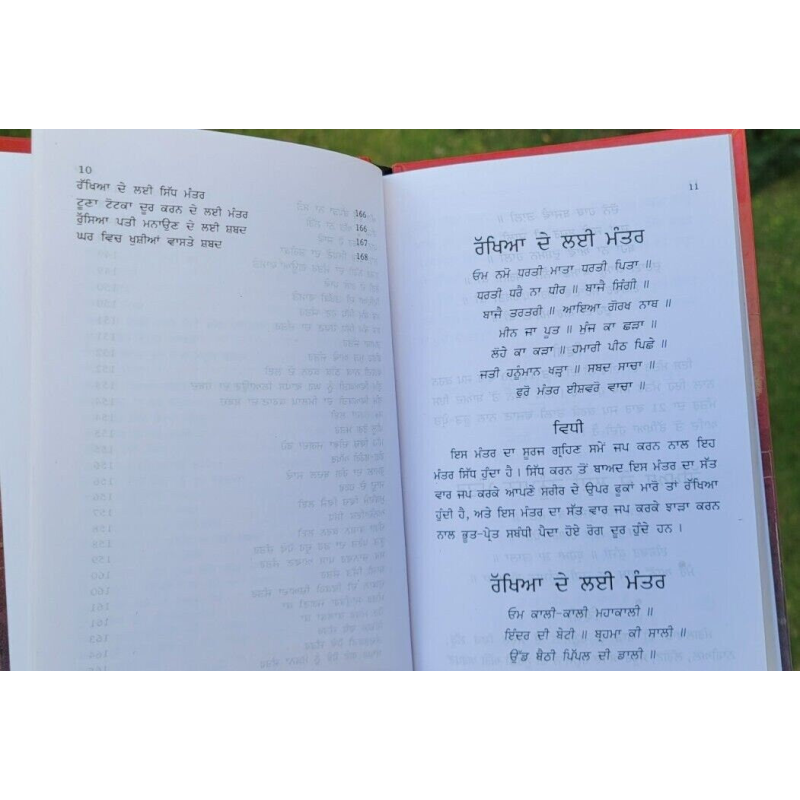 10
ਰੱਖਿਆ ਦੇ ਲਈ ਸਿੱਧ ਮੰਤਰ 166
ਟੂਣਾ ਟੋਟਕਾ ਦੂਰ ਕਰਨ ਦੇ ਲਈ ਮੰਤਰ 166
ਰੁੱਸਿਆ ਪਤੀ ਮਨਾਉਣ ਦੇ ਲਈ ਸ਼ਬਦ 167
ਘਰ ਵਿਚ ਖੁਸ਼ੀਆਂ ਵਾਸਤੇ ਸ਼ਬਦ 168
11
ਰੱਖਿਆ ਦੇ ਲਈ ਮੰਤਰ
ਓਮ ਨਮੋ ਧਰਤੀ ਮਾਤਾ ਧਰਤੀ ਪਿਤਾ ॥
ਧਰਤੀ ਧਰੈ ਨਾ ਧੀਰ ॥ ਬਾਜੈ ਸਿੰਗੀ ॥
ਬਾਜੈ ਤਰਤਰੀ ॥ ਆਇਆ ਗੋਰਖ ਨਾਥ ॥
ਮੀਨ ਜਾ ਪੂਤ ॥ ਮੁੰਜ ਕਾ ਛੜਾ ॥
ਲੋਹੇ ਕਾ ਕੜਾ ॥ ਹਮਾਰੀ ਪੀਠ ਪਿਛੇ ॥
ਜਤੀ ਹਨੂੰਮਾਨ ਖੜ੍ਹਾ ॥ ਸਬਦ ਸਾਚਾ ॥
ਫੁਰੋ ਮੰਤਰ ਈਸ਼ਵਰੋ ਵਾਚਾ ॥
ਵਿਧੀ
ਇਸ ਮੰਤਰ ਦਾ ਸੂਰਜ ਗ੍ਰਹਿਣ ਸਮੇਂ ਜਪ ਕਰਨ ਨਾਲ ਇਹ
ਮੰਤਰ ਸਿੱਧ ਹੁੰਦਾ ਹੈ । ਸਿੱਧ ਕਰਨ ਤੋਂ ਬਾਅਦ ਇਸ ਮੰਤਰ ਦਾ ਸੱਤ
ਵਾਰ ਜਪ ਕਰਕੇ ਆਪਣੇ ਸਰੀਰ ਦੇ ਉਪਰ ਫੂਕਾਂ ਮਾਰੋ ਤਾਂ ਰੱਖਿਆ
ਹੁੰਦੀ ਹੈ, ਅਤੇ ਇਸ ਮੰਤਰ ਦਾ ਸੱਤ ਵਾਰ ਜਪ ਕਰਕੇ ਝਾੜਾ ਕਰਨ
ਨਾਲ ਭੂਤ-ਪ੍ਰੇਤ ਸਬੰਧੀ ਪੈਦਾ ਹੋਏ ਰੋਗ ਦੂਰ ਹੁੰਦੇ ਹਨ ।
ਰੱਖਿਆ ਦੇ ਲਈ ਮੰਤਰ
ਓਮ ਕਾਲੀ-ਕਾਲੀ ਮਹਾਕਾਲੀ ॥
ਇੰਦਰ ਦੀ ਬੇਟੀ ॥ ਬ੍ਰਹਮਾ ਕੀ ਸਾਲੀ ॥
ਉੱਡ ਬੈਠੀ ਪਿੱਪਲ ਦੀ ਡਾਲੀ ॥